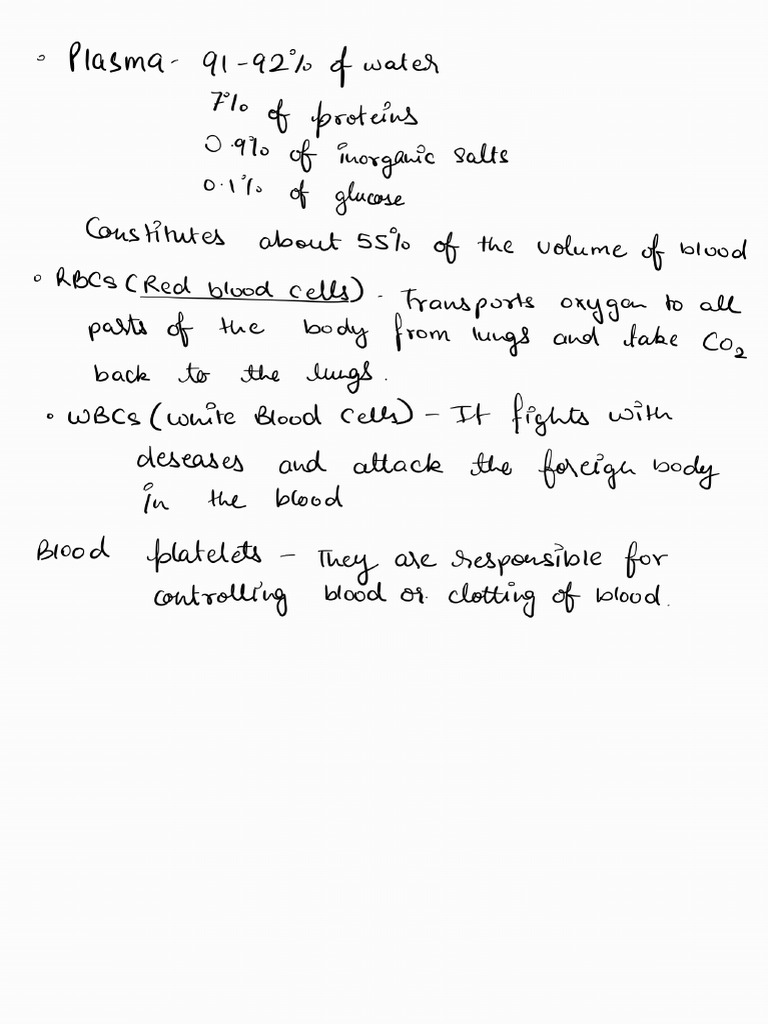 • Plasma - 91-92% of water
7% of proteins
0.9% of inorganic salts
0.1% of glucose
Constitutes about 55% of the volume of blood
• RBCs (Red blood cells) - Transports oxygen to all
parts of the body from lungs and take CO₂
back to the lungs.
• WBCs (White Blood Cells) - It fights with
deseases and attack the foreign body
in the blood
Blood platelets - They are responsible for
controlling blood or clotting of blood.